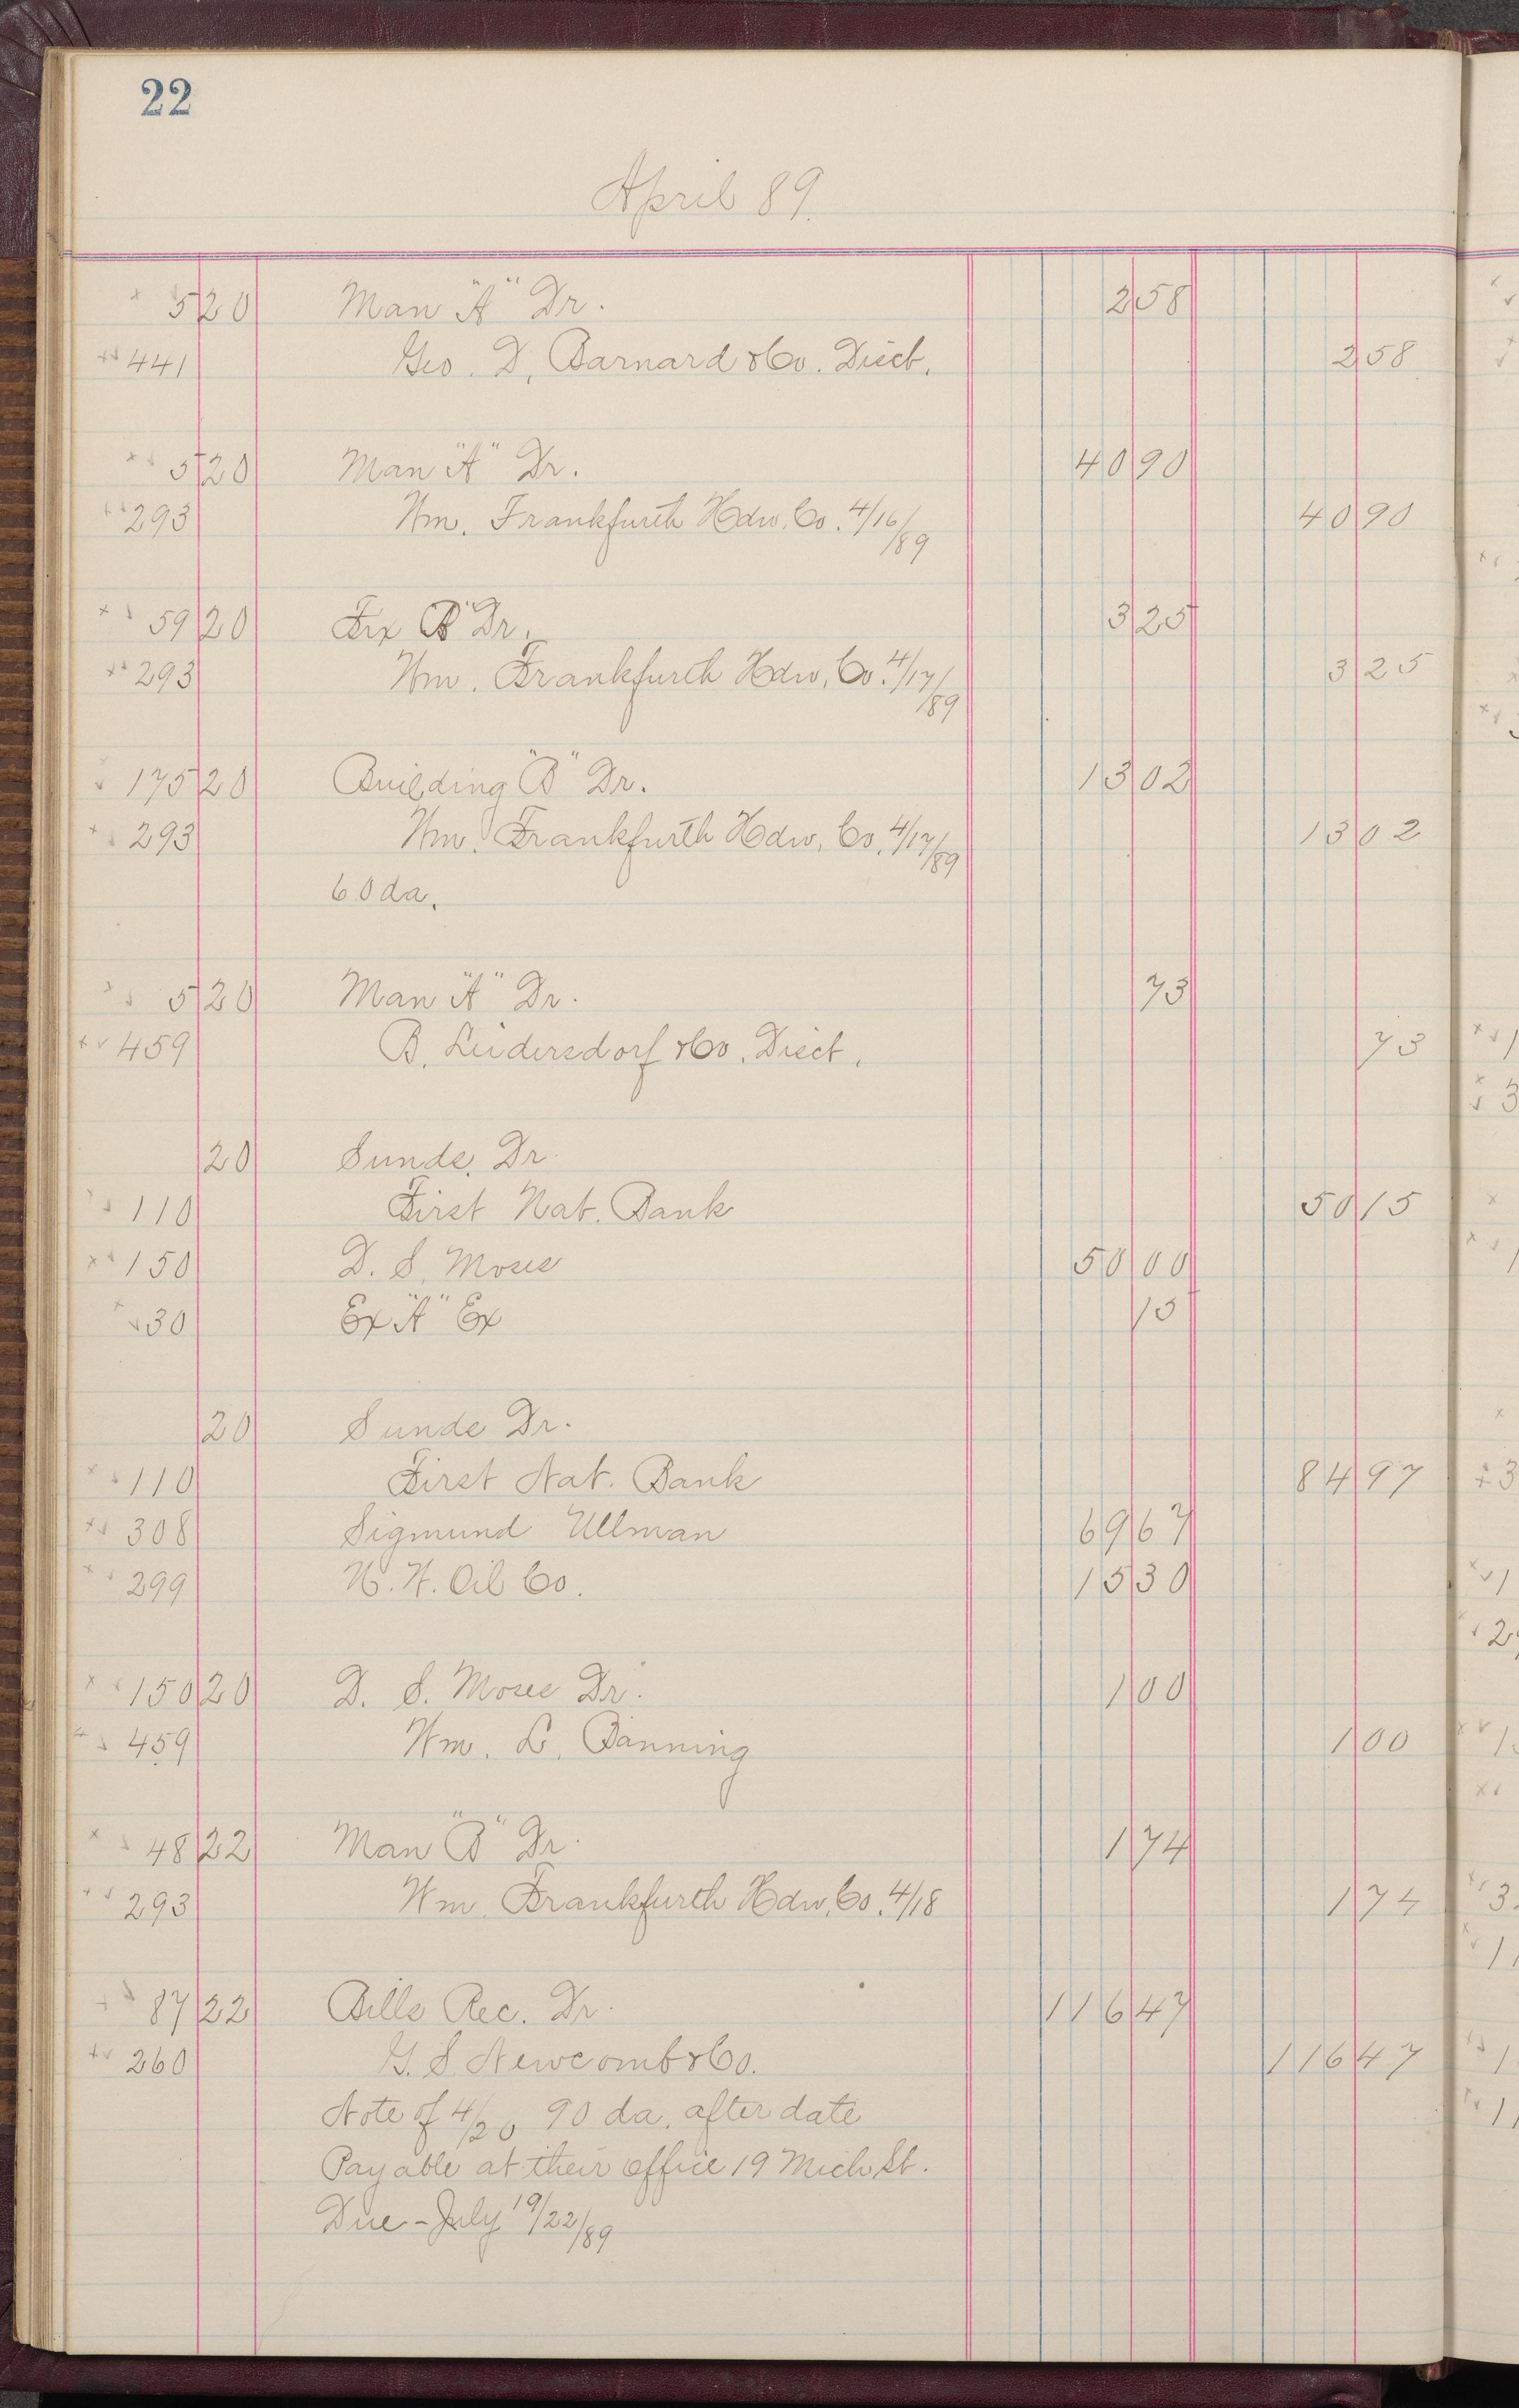 22
April 89.
5 20 Man "A" Dr. 2 58
441 Geo. D. Barnard & Co. Disct. 2 58
5 20 Man "A" Dr. 40 90
293 Wm. Frankfurth Hdw. Co. 4/16/89 40 90
59 20 Fix "B" Dr. 3 25
293 Wm. Frankfurth Hdw. Co. 4/17/89 3 25
175 20 Building "B" Dr. 13 02
293 Wm. Frankfurth Hdw. Co. 4/17/89 13 02
60 da.
5 20 Man "A" Dr. 73
459 B. Leidersdorf & Co. Disct. 73
20 Sunds. Dr.
110 First Nat. Bank 50 15
150 D. S. Moses 50 00
30 Ex "A" Ex 15
20 Sunds Dr.
110 First Nat. Bank 84 97
308 Sigmund Ullman 69 67
299 W. W. Oil Co. 15 30
150 20 D. S. Moses Dr. 1 00
459 Wm. L. Banning 1 00
48 22 Man "B" Dr. 1 74
293 Wm. Frankfurth Hdw. Co. 4/18 1 74
87 22 Bills Rec. Dr. 116 47
260 G. S. Newcomb & Co. 116 47
Note of 4/20 90 da. after date
Payable at their office 19 Mich St.
Due - July 19/22/89